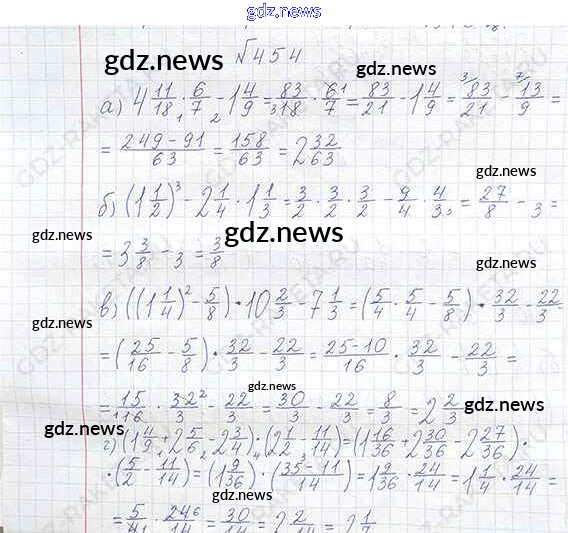 gdz.news
№454
gdz.news
а) 4 11/18 · 6/7 - 1 4/9 = 83/18 · 6/7 = 83/21 - 1 4/9 = 83/21 - 13/9 =
= (249-91)/63 = 158/63 = 2 32/63
gdz.news
б) (1 1/2)³ - 2 1/4 · 1 1/3 = 3/2 · 3/2 · 3/2 - 9/4 · 4/3 = 27/8 - 3 =
gdz.news gdz.news
= 3 3/8 - 3 = 3/8
gdz.news
в) ((1 1/4)² - 5/8) · 10 2/3 - 7 1/3 = (5/4 · 5/4 - 5/8) · 32/3 - 22/3
gdz.news
= (25/16 - 5/8) · 32/3 - 22/3 = (25-10)/16 · 32/3 - 22/3 =
gdz.news
= 15/16 · 32/3 - 22/3 = 30/3 - 22/3 = 8/3 = 2 2/3
gdz.news gdz.news
г) (1 4/9 + 2 5/6 - 2 3/4) · (2 1/2 - 11/14) = (1 16/36 + 2 30/36 - 2 27/36) ·
· (5/2 - 11/14) = (1 9/36) · ((35-11)/14) = 1 9/36 · 24/14 = 1 1/4 · 24/14 =
gdz.news gdz.news
= 5/4 · 24/14 = 30/14 = 2 2/14 = 2 1/7